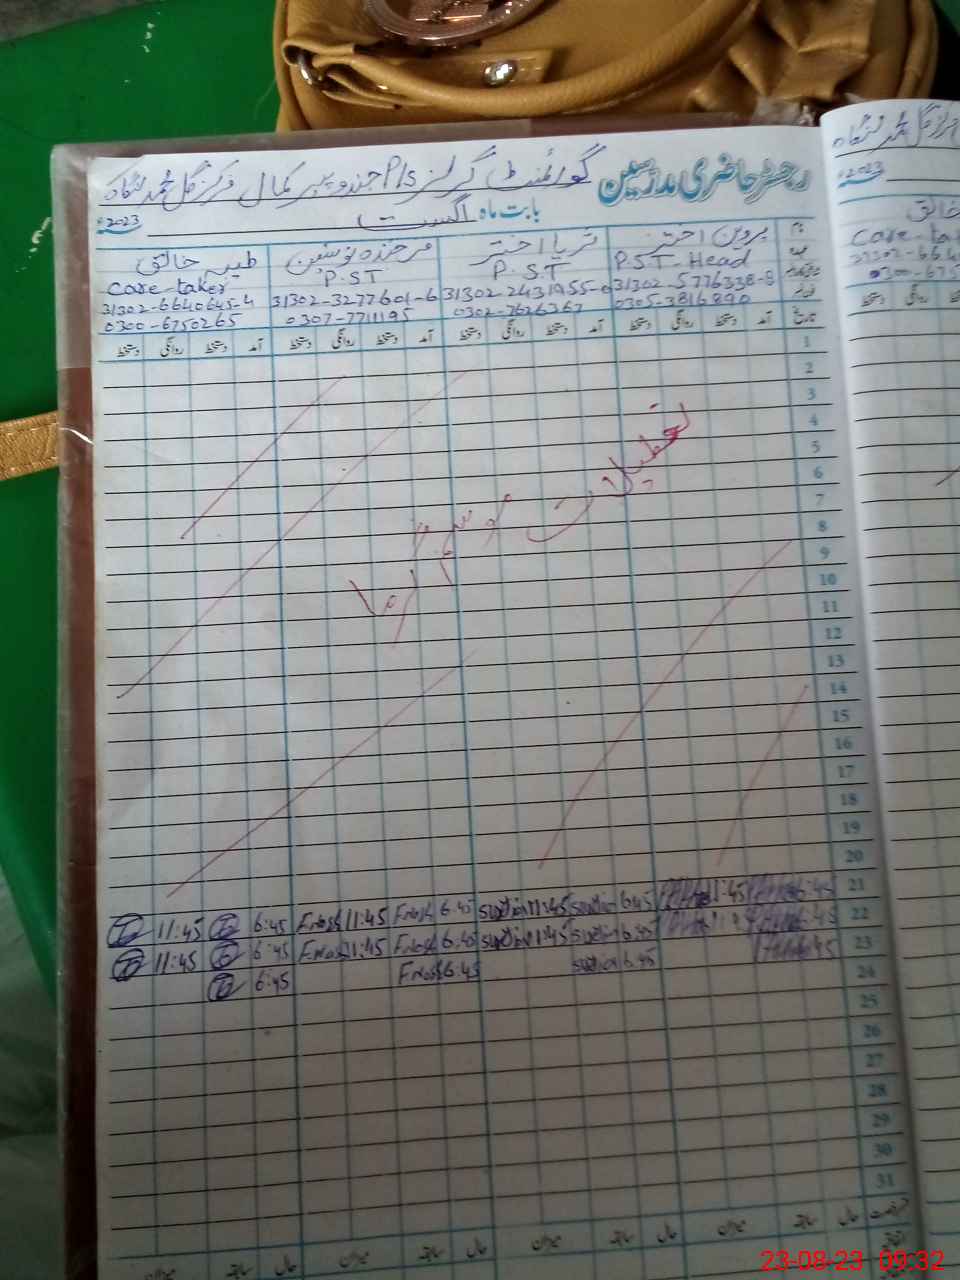 رجسٹر حاضری مدرسین گورنمنٹ گرلز P/s جندو پیر کمال مرکز گل محمد لنگاہ
بابت ماہ اگست 2023ء
نام پروین اختر ثریا اختر فرخندہ نوشین طیبہ خالق
P.S.T-Head P.S.T P.S.T care-taker
31302-5776338-8 31302-2431955-0 31302-3277601-6 31302-6640645-4
0305-3816890 0302-7626367 0307-7711195 0300-6750265
تاریخ آمد دستخط روانگی دستخط آمد دستخط روانگی دستخط آمد دستخط روانگی دستخط آمد دستخط روانگی دستخط
1
2
3
4
5
6
7
8
9
10
11
12
13
14
15
16
17
18
19
20
تعطیلات موسم گرما
21 6:45 1:45 6:45 11:45 6:45 11:45 6:45 11:45
22 6:45 6:45 11:45 6:45 11:45 6:45 11:45
23 6:45 6:45 6:45 6:45
24
25
26
27
28
29
30
31
رخصت حال سابقہ میزان حال سابقہ میزان حال سابقہ میزان حال سابقہ میزان
23-08-23 09:32
گل محمد لنگاہ
2023ء
خالق
care-ta
31302-664
0300-675